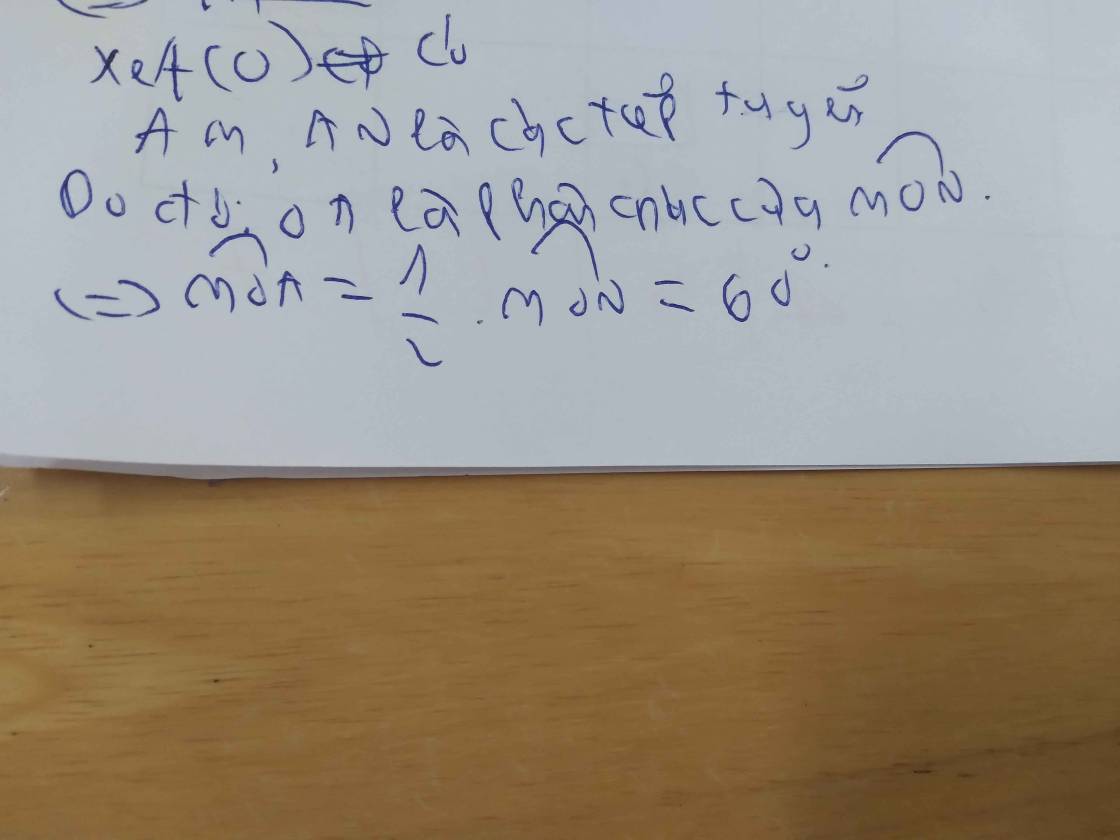 Xét (O) có
AM, AN là các tiếp tuyến
Do đó: OA là phân giác của MON.
(=) MOA = 1/2 . MON = 60°.